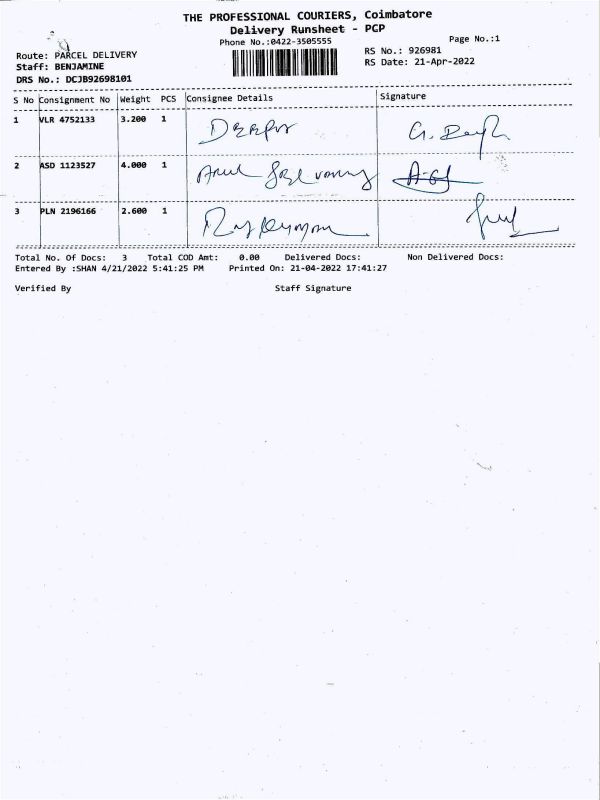 THE PROFESSIONAL COURIERS, Coimbatore
Delivery Runsheet - PCP
Phone No.:0422-3505555
Page No.:1
Route: PARCEL DELIVERY
RS No.: 926981
Staff: BENJAMINE
RS Date: 21-Apr-2022
DRS No.: DCJB92698101
S No Consignment No Weight PCS Consignee Details Signature
1 VLR 4752133 3.200 1
2 ASD 1123527 4.000 1 Arul
3 PLN 2196166 2.600 1
Total No. Of Docs: 3 Total COD Amt: 0.00 Delivered Docs: Non Delivered Docs:
Entered By :SHAN 4/21/2022 5:41:25 PM Printed On: 21-04-2022 17:41:27
Verified By Staff Signature